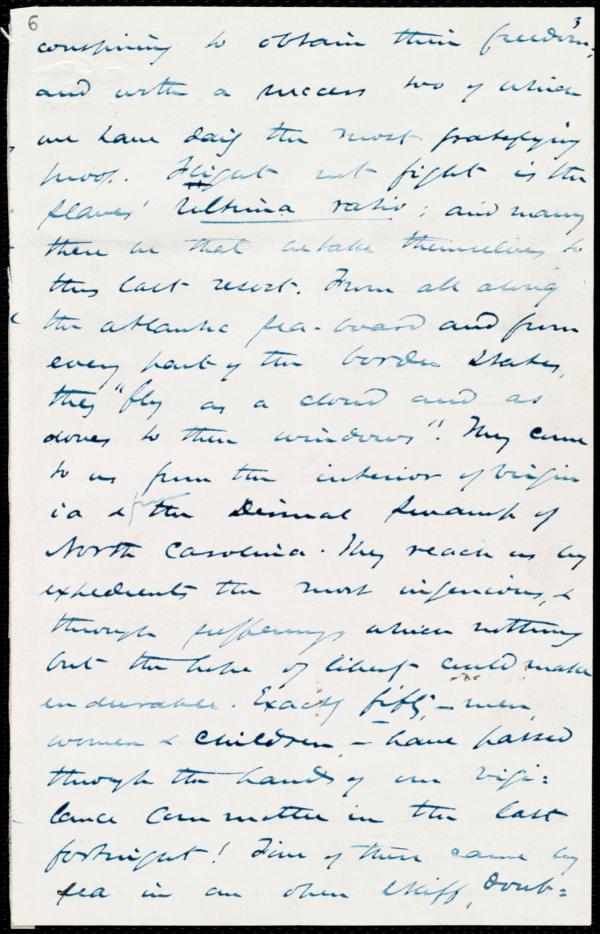 6 3
conspiring to obtain their freedom,
and with a success too of which
we have daily the most gratifying
proof. Flight not fight is the
slaves' ultima ratio; and many
there be that betake themselves to
this last resort. From all along
the atlantic sea-board and from
every part of the border States,
they "fly as a cloud and as
doves to their windows". They come
to us from the interior of virgin
ia & from the Dismal Swamp of
North Carolina. They reach us by
expedients the most ingenious, &
through sufferings which nothing
but the hope of liberty could make
endurable. Exactly fifty,—men,
women & children,—have passed
through the hands of our vigi=
lance Committee in the last
fortnight! Five of them came by
sea in an open skiff, doub=